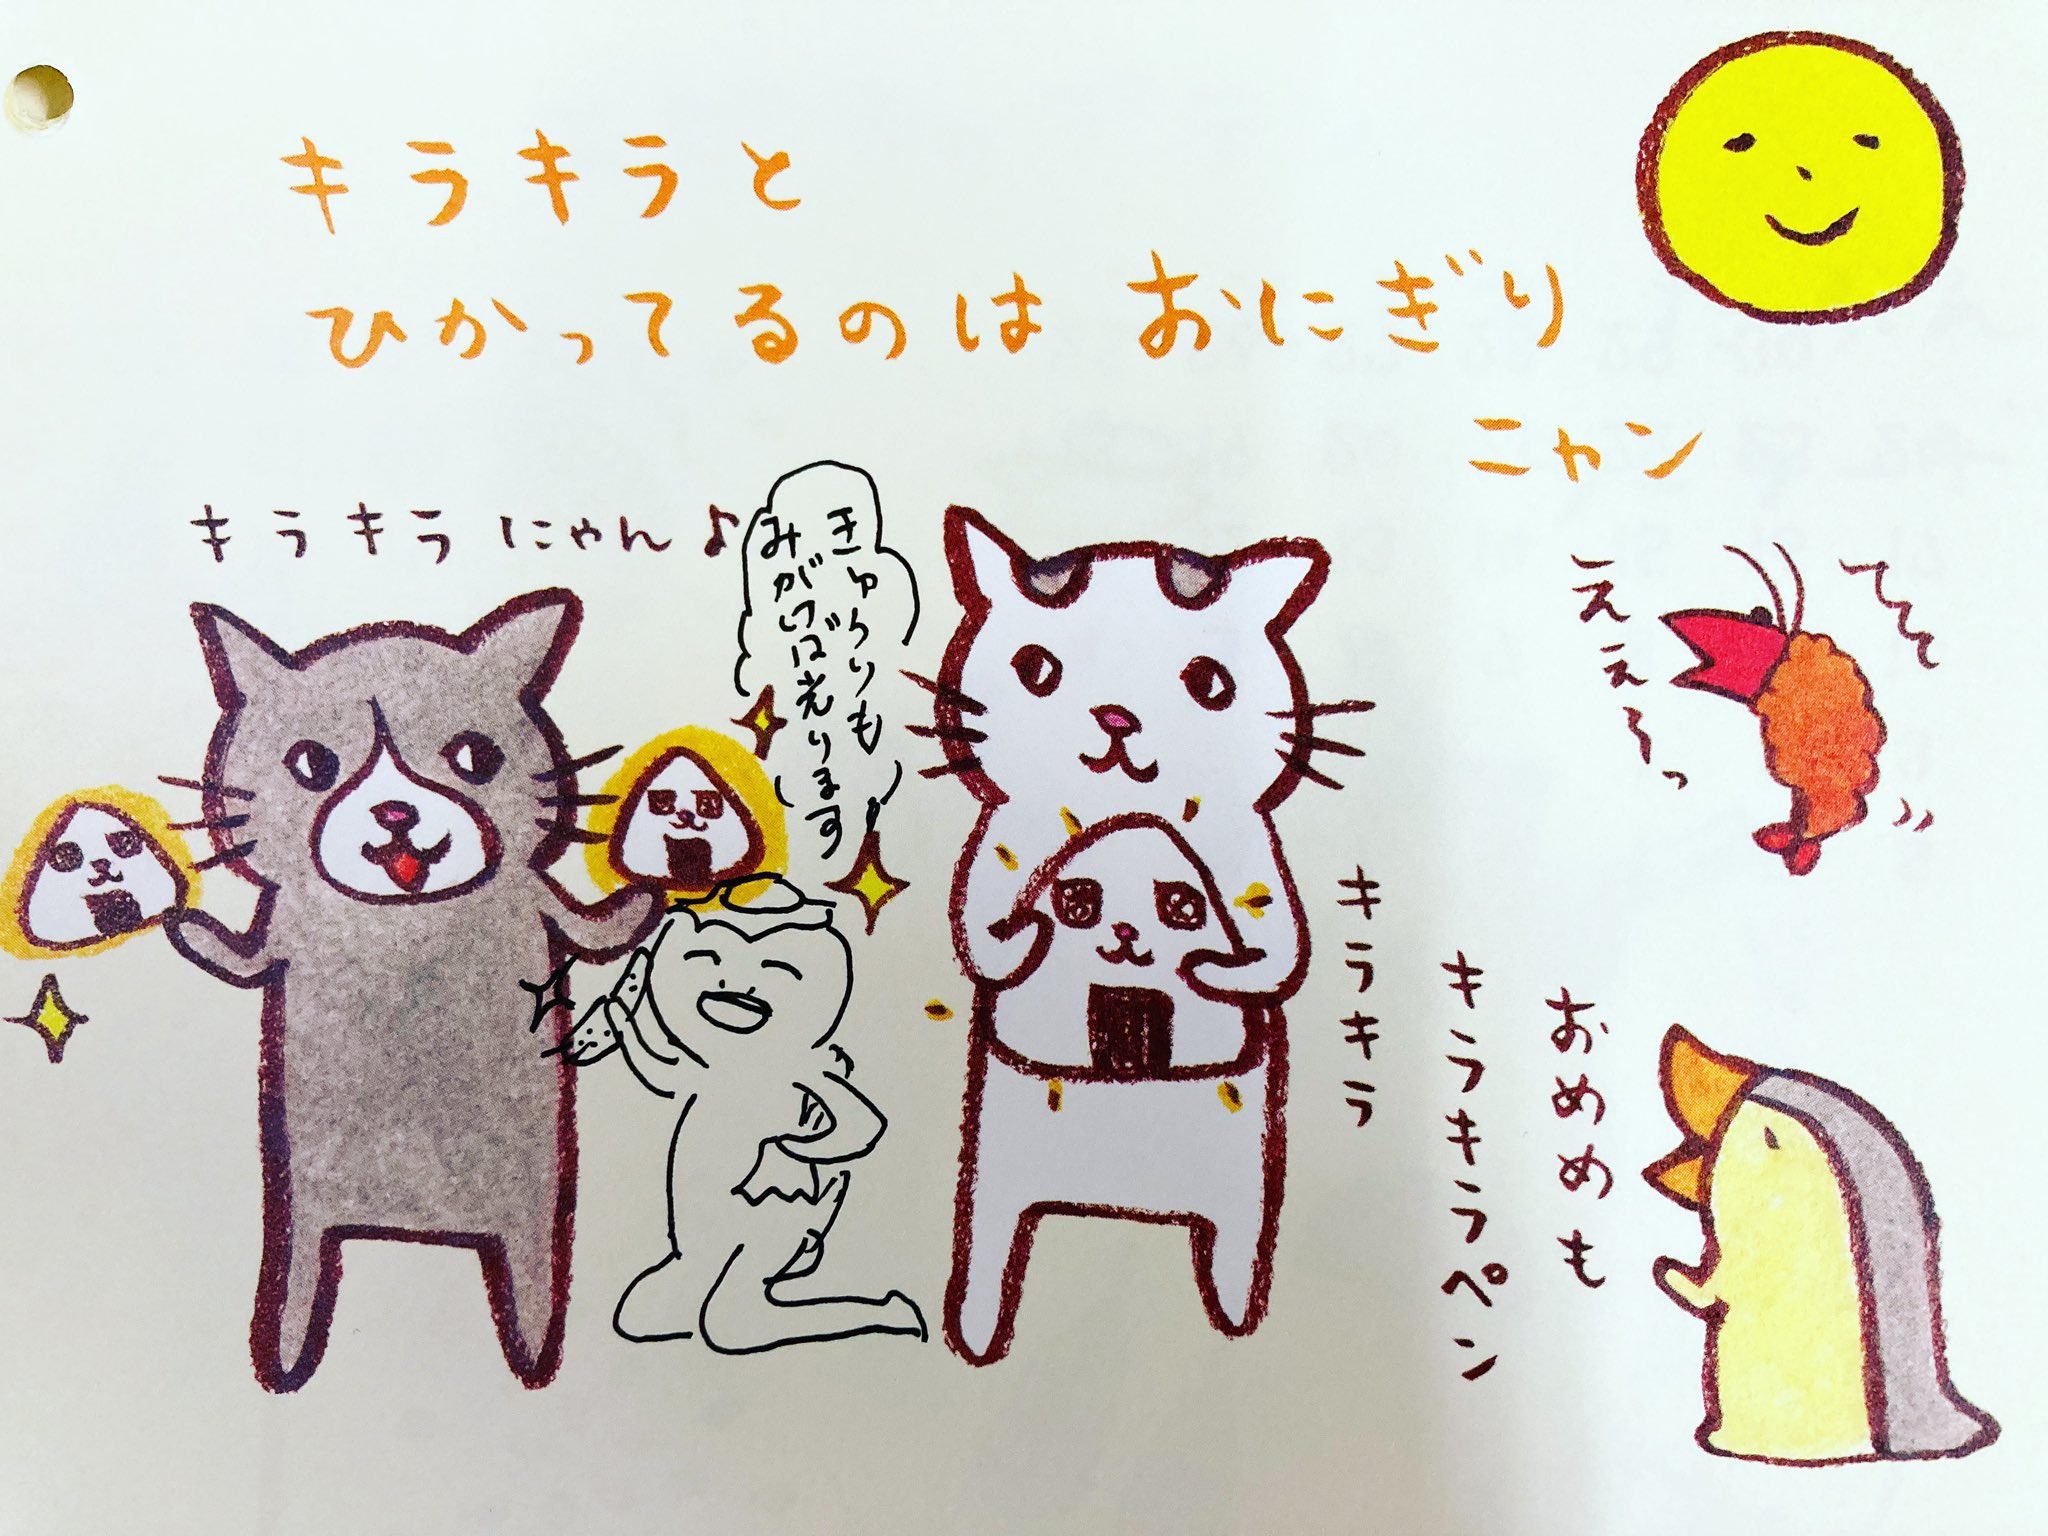 キラキラと
ひかってるのは おにぎり
ニャン
キラキラにゃん♪
きゅうりも
みがけば光ります
ええぇ
えぇ〜っ
キラキラ
おめめも
キラキラペン